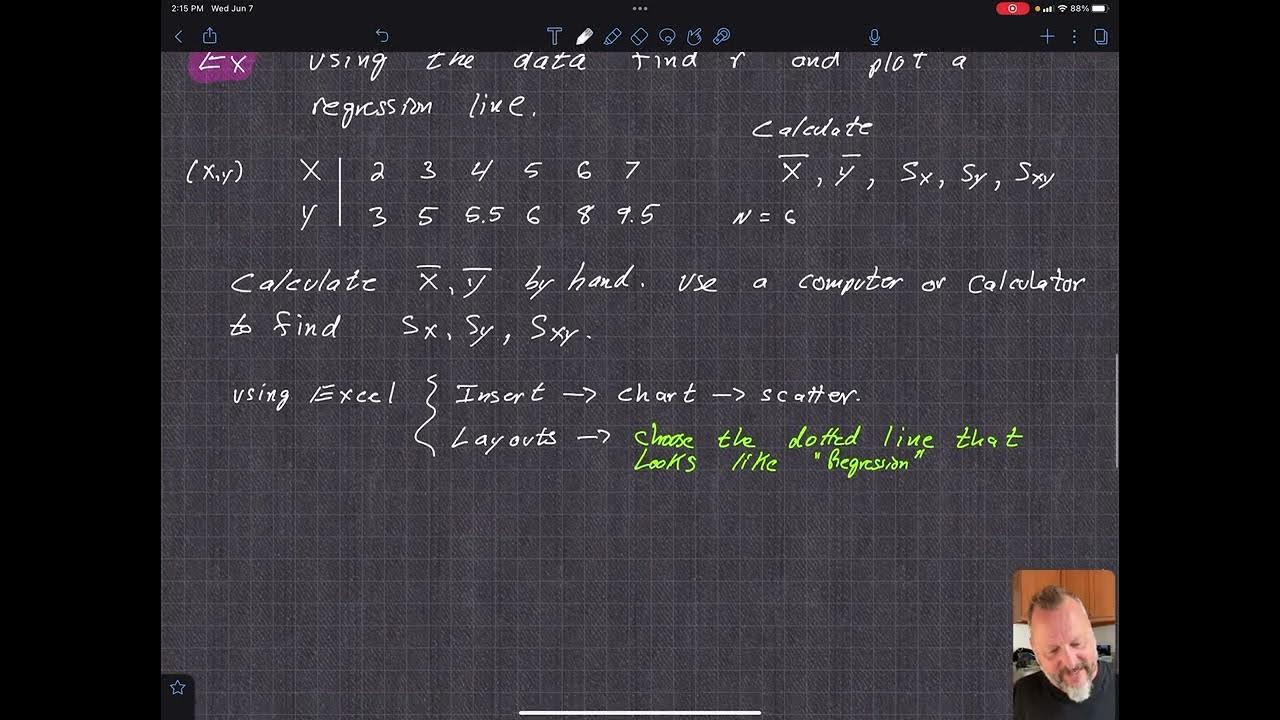 2:15 PM Wed Jun 7
88%
Ex using the data find r and plot a
regression line.
Calculate
(x,y) X 2 3 4 5 6 7
X̅, y̅, Sx, Sy, Sxy
Y 3 5 5.5 6 8 9.5
N = 6
Calculate X̅, y̅ by hand. use a computer or calculator
to find Sx, Sy, Sxy.
using Excel { Insert → chart → scatter.
Layouts → choose the dotted line that
looks like "Regression"